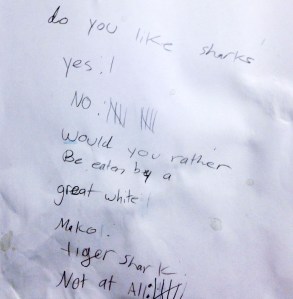 do you like sharks
yes: |
No: |||| ||||
Would you rather
Be eaten by a
great white |
Mako |.
tiger shark.
Not at All: ||||